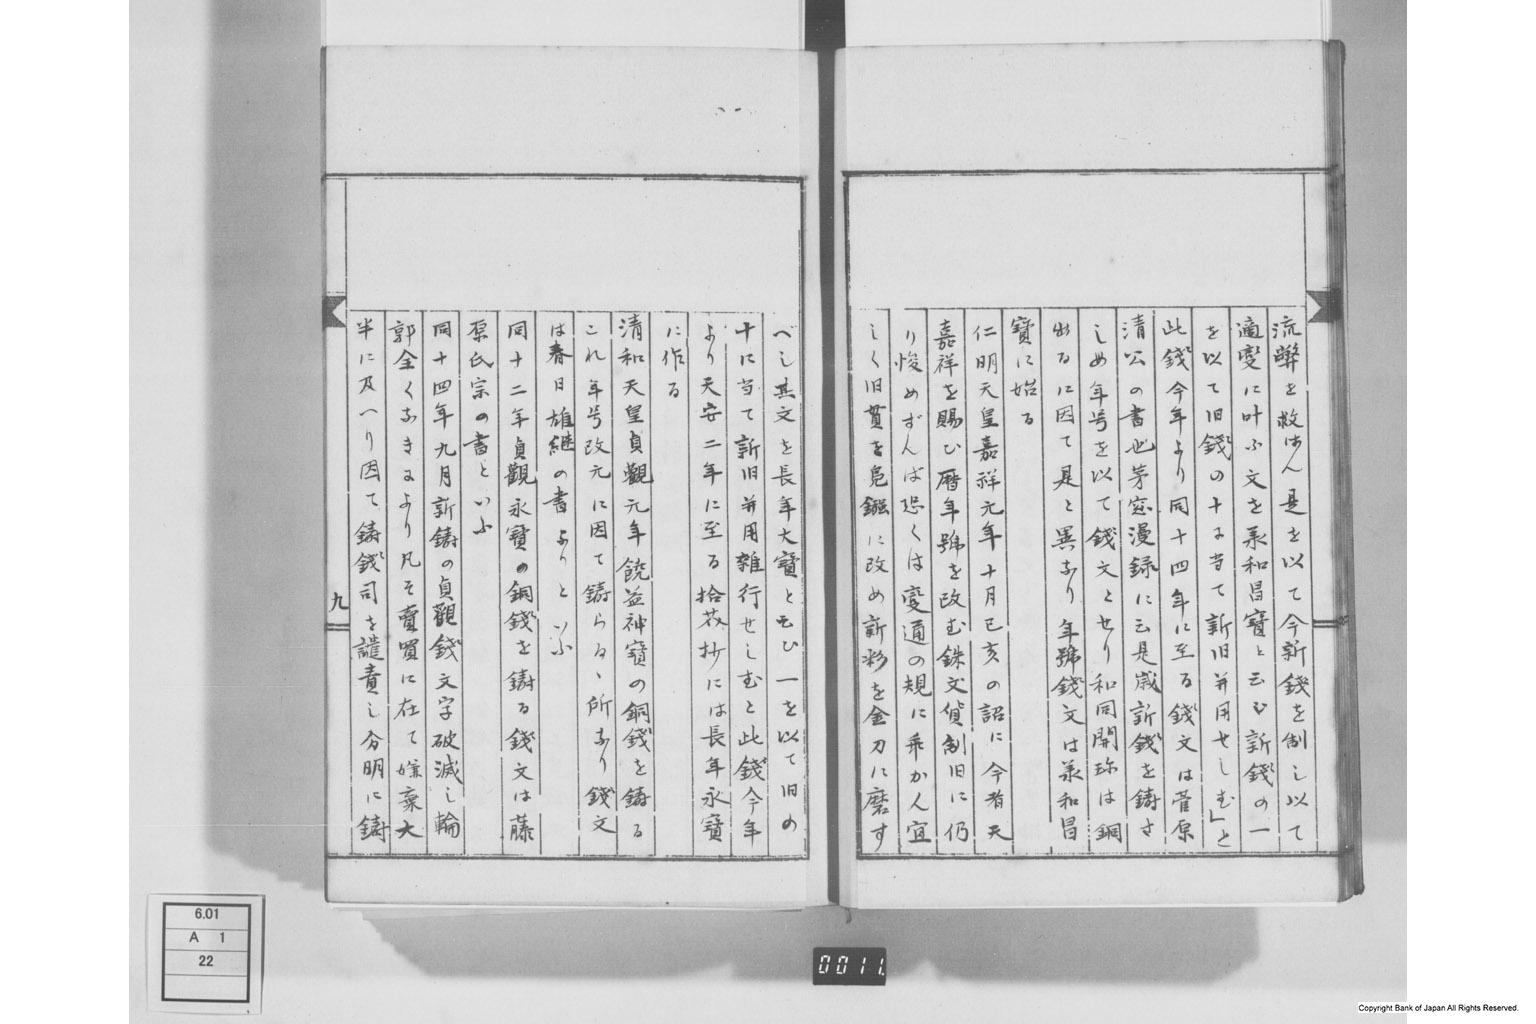 流弊を救はん是を以て今新錢を制し以て
適変に叶ふ文を承和昌寶と云ひ新錢の一
を以て旧錢の十に当て新旧并用せしむ」と
此錢今年より同十四年に至る錢文は菅原
清公の書也茅窓漫録に云是歳新錢を鋳さ
しめ年号を以て錢文とせり和同開珎は銅
出るに因て是と異なり年號錢文は承和昌
寶に始る
仁明天皇嘉祥元年十月己亥の詔に今者天
嘉祥を賜ひ暦年號を改む銖文貨制旧に仍
り悛めずんば恐くは変通の規に乖かん宜
しく旧貫を鳧鏹に改め新彩を金刀に磨す
べし其文を長年大寶と云ひ一を以て旧の
十に当て新旧并用雜行せしむと此錢今年
より天安二年に至る拾芥抄には長年永寶
に作る
清和天皇貞觀元年饒益神寶の銅錢を鋳る
これ年号改元に因て鋳らるゝ所なり錢文
は春日雄継の書なりといふ
同十二年貞觀永寶の銅錢を鋳る錢文は藤
原氏宗の書といふ
同十四年九月新鋳の貞觀錢文字破滅し輪
郭全くなきにより凡そ賣買に在て嫌棄大
半に及べり因て鋳錢司を譴責し分明に鋳
九
6.01
A 1
22
0011
Copyright Bank of Japan All Rights Reserved.